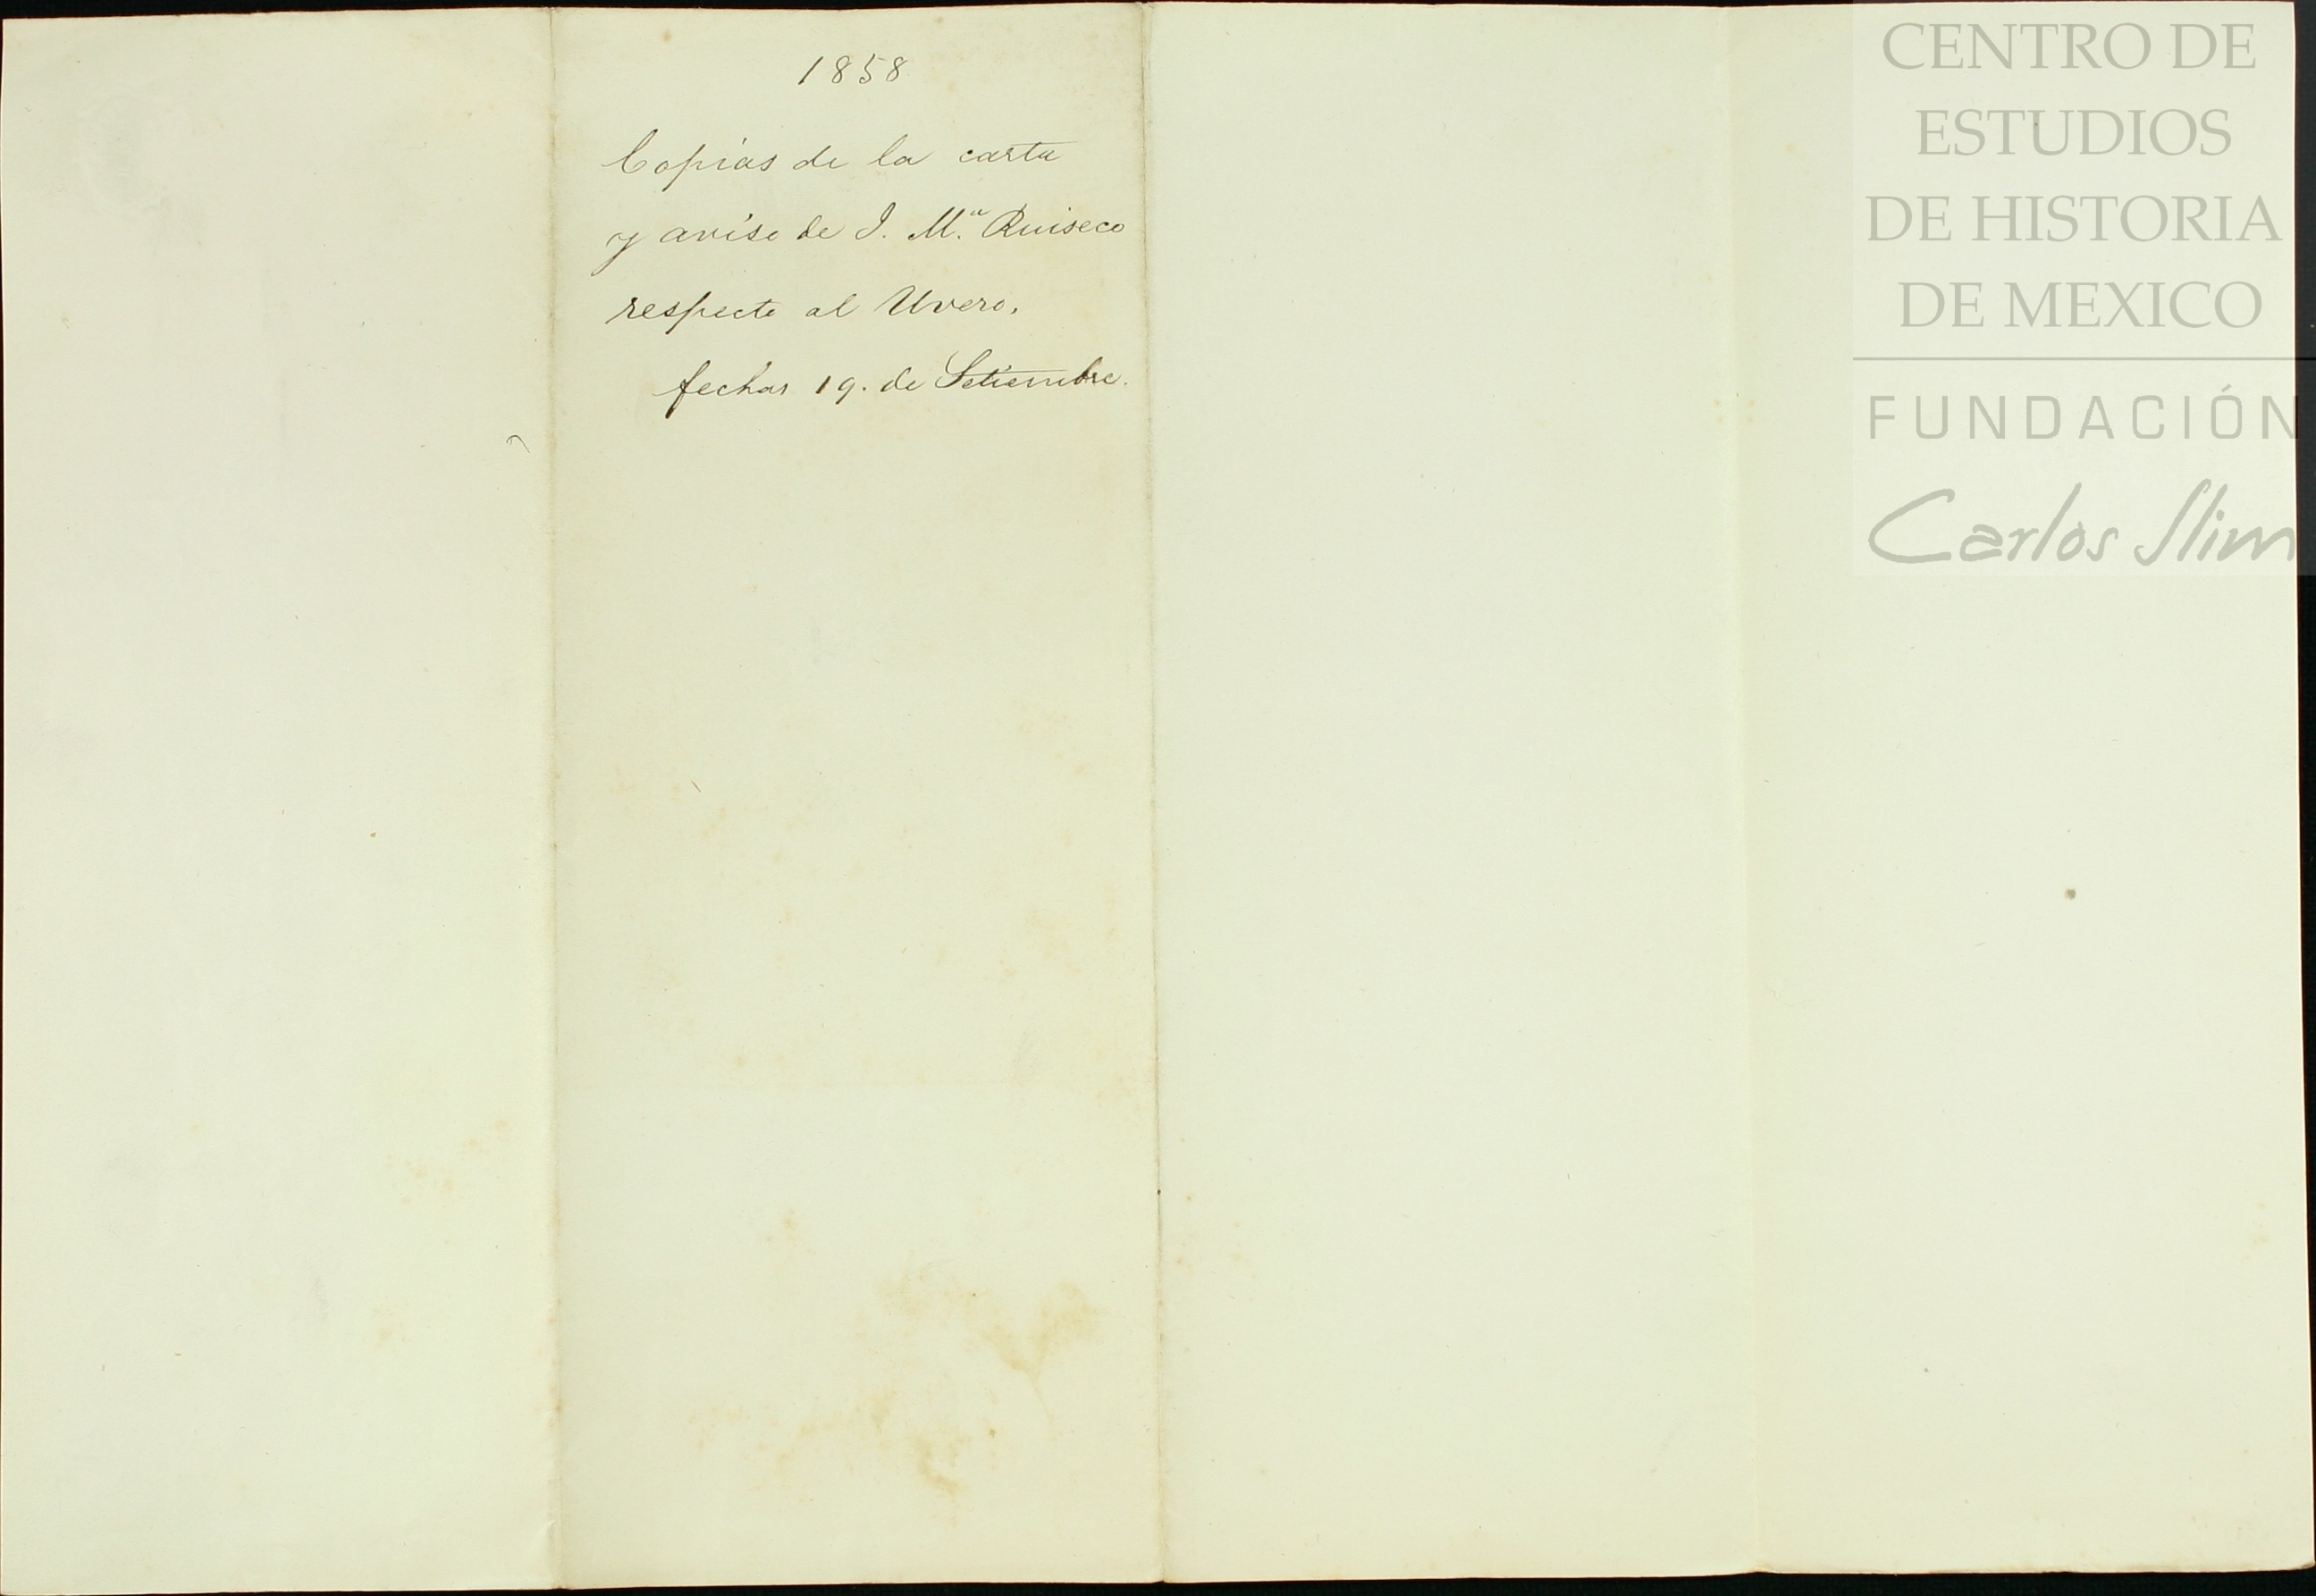 1858
Copias de la carta
y aviso de J. Mª Ruiseco
respecto al Uvero.
fechas 19. de Setiembre.
CENTRO DE
ESTUDIOS
DE HISTORIA
DE MEXICO
FUNDACIÓN
Carlos Slim